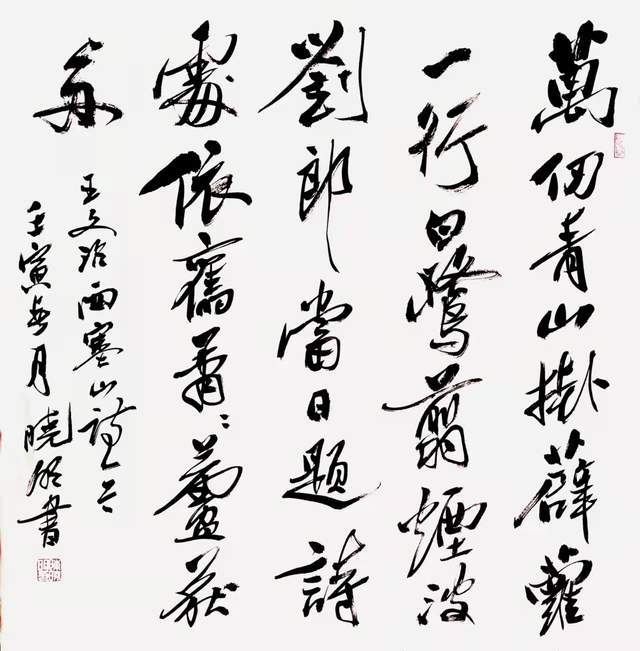 萬仞青山掛薜蘿
一行白鷺翦煙波
劉郎當日題詩
處依舊蕭〻蘆荻
王文治西塞山詩一首
壬寅春月曉書